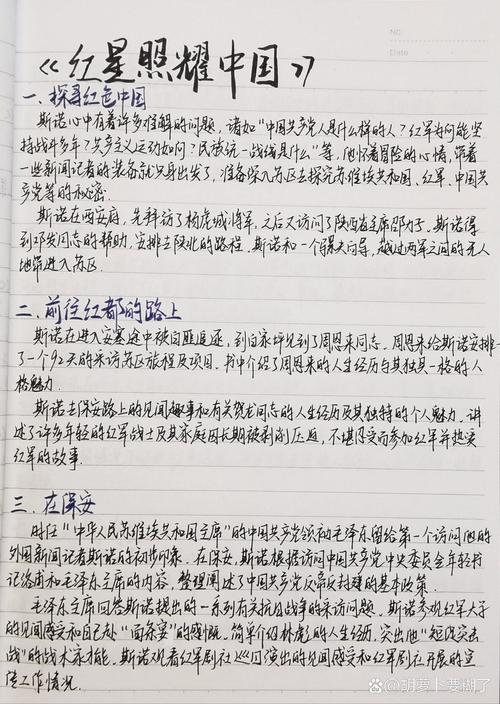 No.
Date
《红星照耀中国》
一、探寻红色中国
斯诺心中有着许多难解的问题，诸如“中国共产党人是什么样的人？红军为何能坚
持战斗多年？共产主义运动如何？民族统一战线是什么”等，他怀着冒险的心情，带着
一些新闻记者的装备就只身出发了，准备深入苏区去探究苏维埃共和国、红军、中国共
产党等的秘密。
斯诺在西安府，先拜访了杨虎城将军，之后又访问了陕西省主席邵力子。斯诺得
到邓发同志的帮助，安排去陕北的路程。斯诺和一个得夫向导，越过两军之间的无人
地带进入苏区。
二、前往红都的路上
斯诺在进入安塞途中被白匪追逐，到白家坪见到了周恩来同志。周恩来给斯诺安排
了一个92天的采访苏区旅程及项目。书中介绍了周恩来的人生经历与其独具一格的人
格魅力。
斯诺去保安路上的见闻趣事和有关贺龙同志的人生经历及其独特的个人魅力。讲
述了许多年轻的红军战士及其家庭因长期被剥削压迫，不堪忍受而参加红军并热爱
红军的故事。
三、在保安
时任“中华人民苏维埃共和国主席”的中国共产党领袖毛泽东留给第一个访问他的
外国新闻记者斯诺的初步印象。在保安，斯诺根据访问中国共产党中央委员会年轻书
记洛甫和毛泽东主席的内容，整理阐述了中国共产党反帝反封建的基本政策。
毛泽东主席回答斯诺提出的一系列有关抗日战争的采访问题。斯诺参观红军大学
的见闻感受和自己却“面条宴”的感慨。简单介绍林彪的人生经历，突出他“短促突击
战”的战术家才能。斯诺观看红军剧社巡回演出的见闻感受和红军剧社开展的宣
传工作情况。
知乎 @胡萝卜要糊了